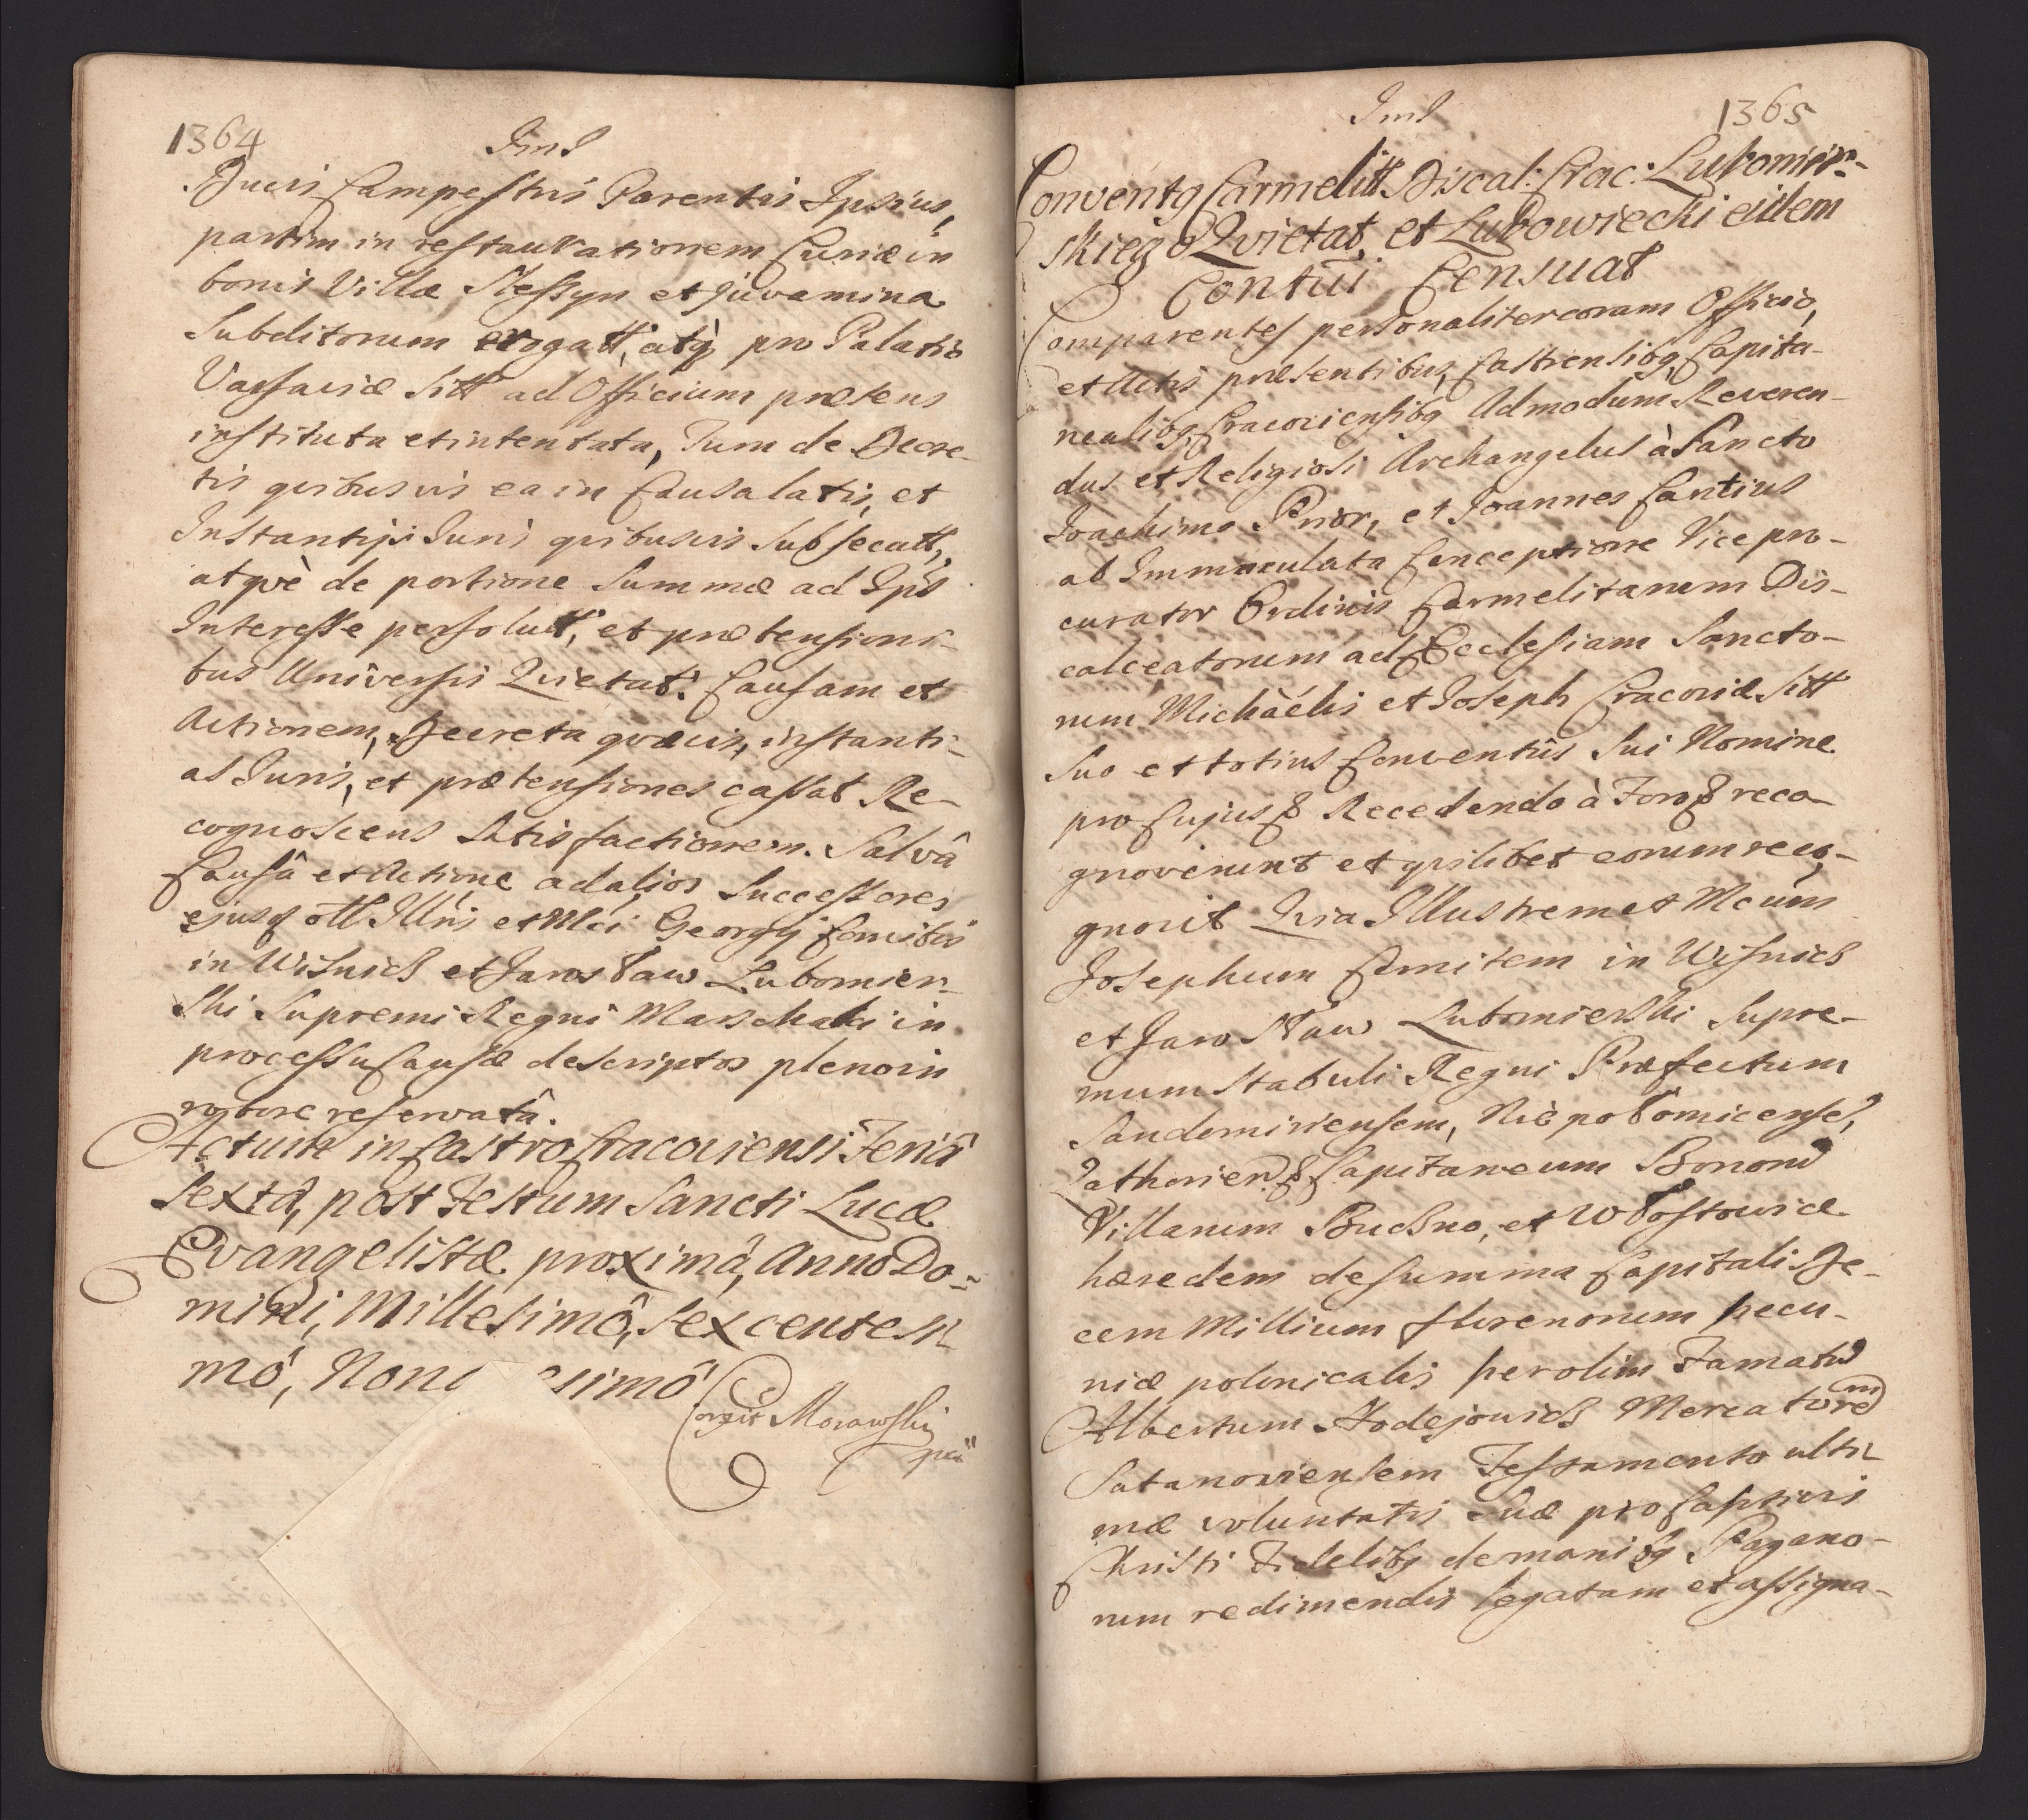 1364
Jms
Ducis Campestris Parentis Ipsius,
partim in restaurationem Curiæ in
bonis Villæ Slessyn et juvamina
Subditorum erogatt, atq, pro Palatio
Varsaviæ Sitt ad Officium prætens
instituta et intentata, Tum de Decre-
tis quibusvis ea in Causa latis, et
Instantijs Juris quibusvis Subsecutt,
atquè de portione Summæ ad Ips
Interesse persolutt, et prætensioni-
bus Universis Quietat. Causam et
Actionem, Decreta quævis, instanti-
as Juris, et prætensiones cassat Re-
cognoscens Satisfactionem. Salvâ
Causâ et Actione ad alios Successores
ejusd ott Illris et Mci Georgij Comitis
in Wisnicz et Jarosław Lubomier-
ski Supremi Regni Marschalci in
processu Causæ descriptos pleno in
robore reservatâ.
Actum in Castro Cracoviensi Feriâ
Sextâ, post Festum Sancti Lucæ
Evangelistæ proximâ, Anno Do-
mini, Millesimô, Sexcentesi-
mô, Non simô
Corexit Morawski
1365
Jms
Convents Carmelitt Discal: Crac: Lubomir-
skiego Quietat, et Lubowiecki eidem
Contui Censuat
Comparentes personaliter coram Officio,
et Actis præsentibus, Castrensibq, Capita-
nealibq, Cracoviensibq Admodum Reveren-
dus et Religiosi Archangelus à Sancto
Joachimo Prior, et Joannes Cantius
ab Immaculata Conceptione Vice pro-
curator Ordinis Carmelitarum Dis-
calceatorum ad Ecclesiam Sancto-
rum Michaélis et Joseph Cracoviæ Sitt
Suo et totius Conventûs Sui Nomine
pro Cujus & Recedendo à Foro & reco-
gnoverunt et quilibet eorum reco-
gnovit Quia Illustrem et Mcum
Josephum Comitem in Wisnicz
et Jarosław Lubomierski Supre-
mum Stabuli Regni Præfectum
Sandomiriensem, Niepołomicense,
Zathorien & Capitaneum Bonorū
Villarum Buczno, et Włostowice
hæredem de summa Capitali De-
cem Millium florenorum pecu-
niæ polonicalis per olim Famatū
Albertum Hodejowicz Mercatorem
Satanoviensem Testamento ulti-
mæ voluntatis Suæ pro Captivis
Christi Fidelibq de manibq Pagano-
rum redimendis legatam et assigna-